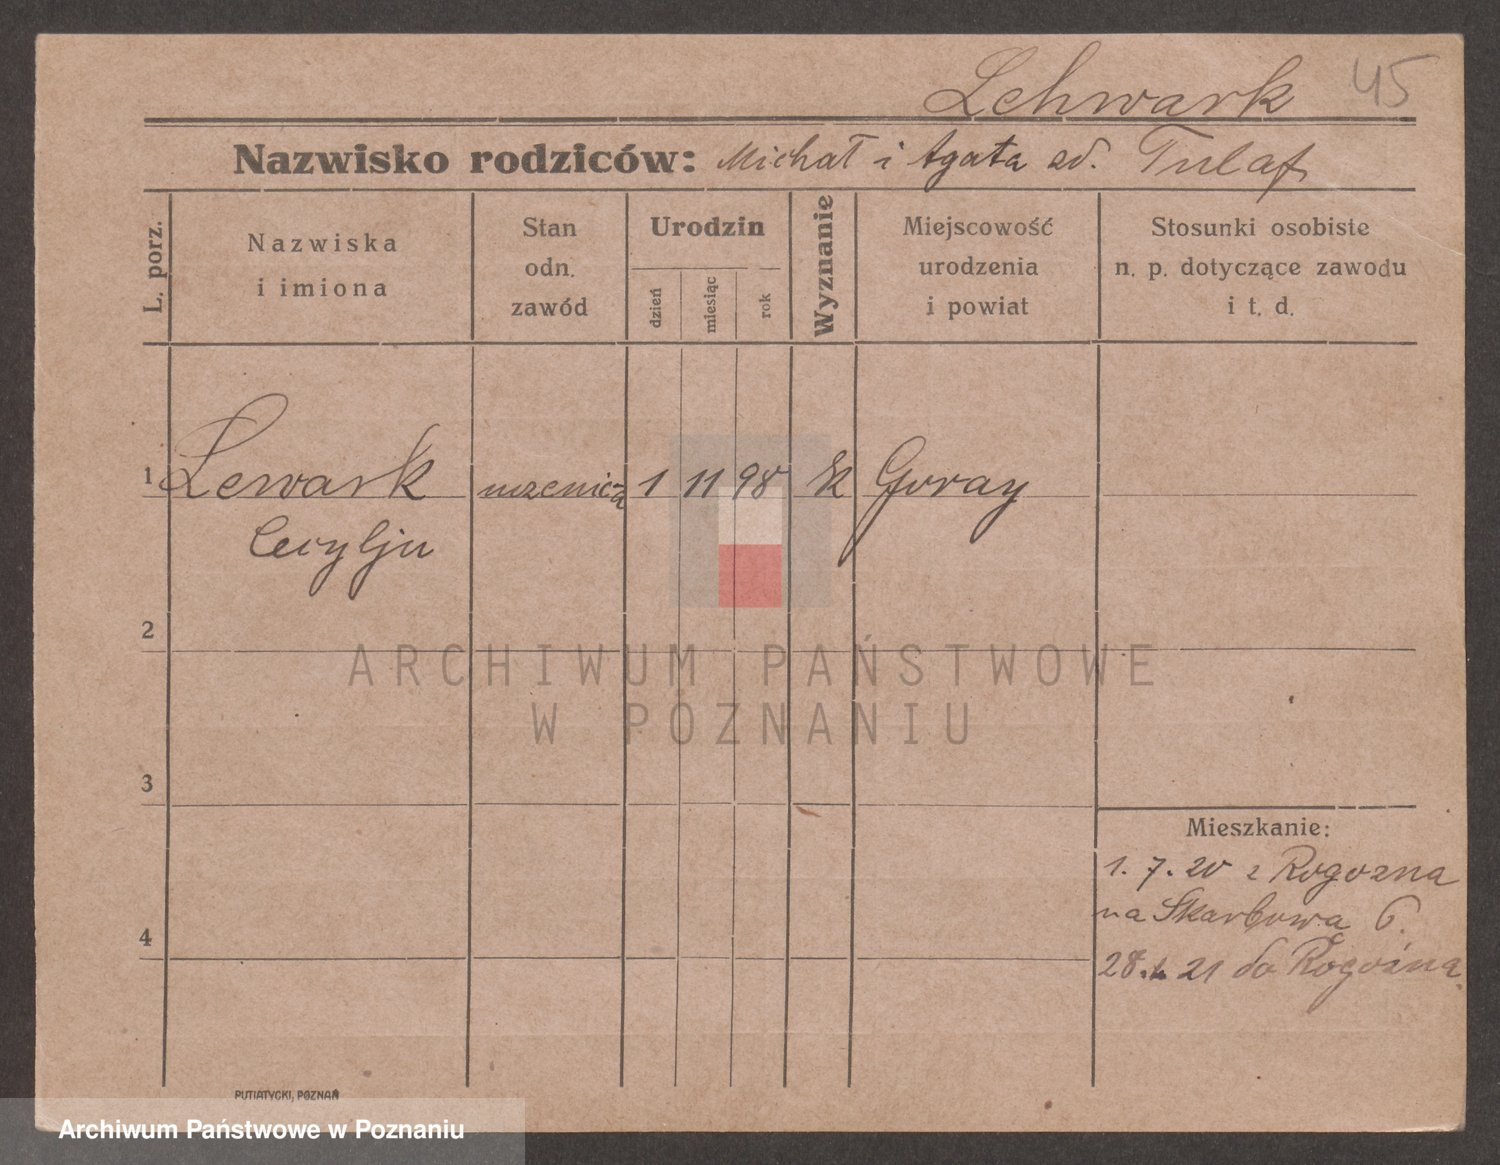 Lehwark 45
Nazwisko rodziców: Michał i Agata zd. Tulaf
L. porz.
Nazwiska
i imiona
Stan
odn.
zawód
Urodzin
dzień
miesiąc
rok
Wyznanie
Miejscowość
urodzenia
i powiat
Stosunki osobiste
n. p. dotyczące zawodu
i t. d.
1 Lewark uczenica 1 11 98 k Goray
Cecylja
2
ARCHIWUM PAŃSTWOWE
W POZNANIU
3
Mieszkanie:
1. 7. 20 z Rogozna
na Skarbowa 6.
4
28. 21 do Rogoźna
PUTIATYCKI, POZNAŃ
Archiwum Państwowe w Poznaniu